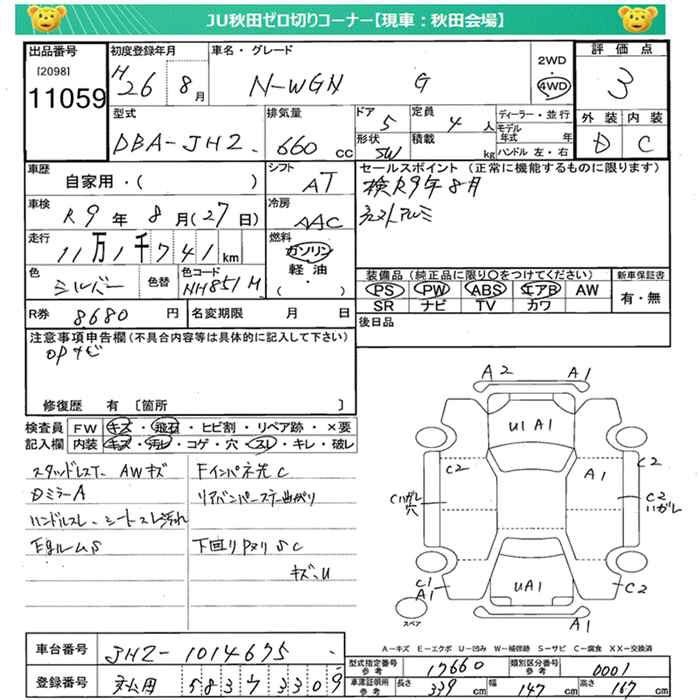 JU秋田ゼロ切りコーナー【現車：秋田会場】
出品番号
[2098]
11059
初度登録年月
H26 8月
車名・グレード
N-WGN G
2WD
4WD
評価点
3
外装 内装
D C
型式
DBA-JH2
排気量
660 cc
ドア
5
定員
4人
形状
SW
積載
kg
ディーラー・並行
モデル年式 年
ハンドル 左・右
車歴
自家用・( )
シフト
AT
セールスポイント（正常に機能するものに限ります）
検R9年8月
車検
R9年8月(27日)
冷房
AAC
走行
11万1千741km
燃料
ガソリン
軽油
・( )
色
シルバー
色替
色コード
NH851M
装備品（純正品に限り〇をつけてください）
PS PW ABS エアB AW
SR ナビ TV カワ
新車保証書
有・無
R券 8680円
名変期限 月 日
後日品
注意事項申告欄（不具合内容等は具体的に記入して下さい）
opナビ
修復歴 有 〔箇所 〕
検査員記入欄
FW キズ・飛石・ヒビ割・リペア跡・×要
内装 キズ・汚レ・コゲ・穴・スレ・キレ・破レ
スタッドレスT、AWキズ
DミラーA
ハンドルスレ、シートスレ汚れ
EgルームS
Fインパネ先C
リアバンパーステー曲がり
下回りPヌリSC
キズ、U
A2 A1
U1A1
C2 C2
A1
C1ハガレ穴
C2ハガレ
C1
A1
UA1
C2
A1
スペア
A－キズ E－エクボ U－凹み W－補修跡 S－サビ C－腐食 XX－交換済
車台番号
JH2-1014675
登録番号
5837 3309
型式指定番号 参考
17660
類別区分番号 参考
0001
車津証明所 参考
長さ 339cm
幅 147cm
高さ 167cm